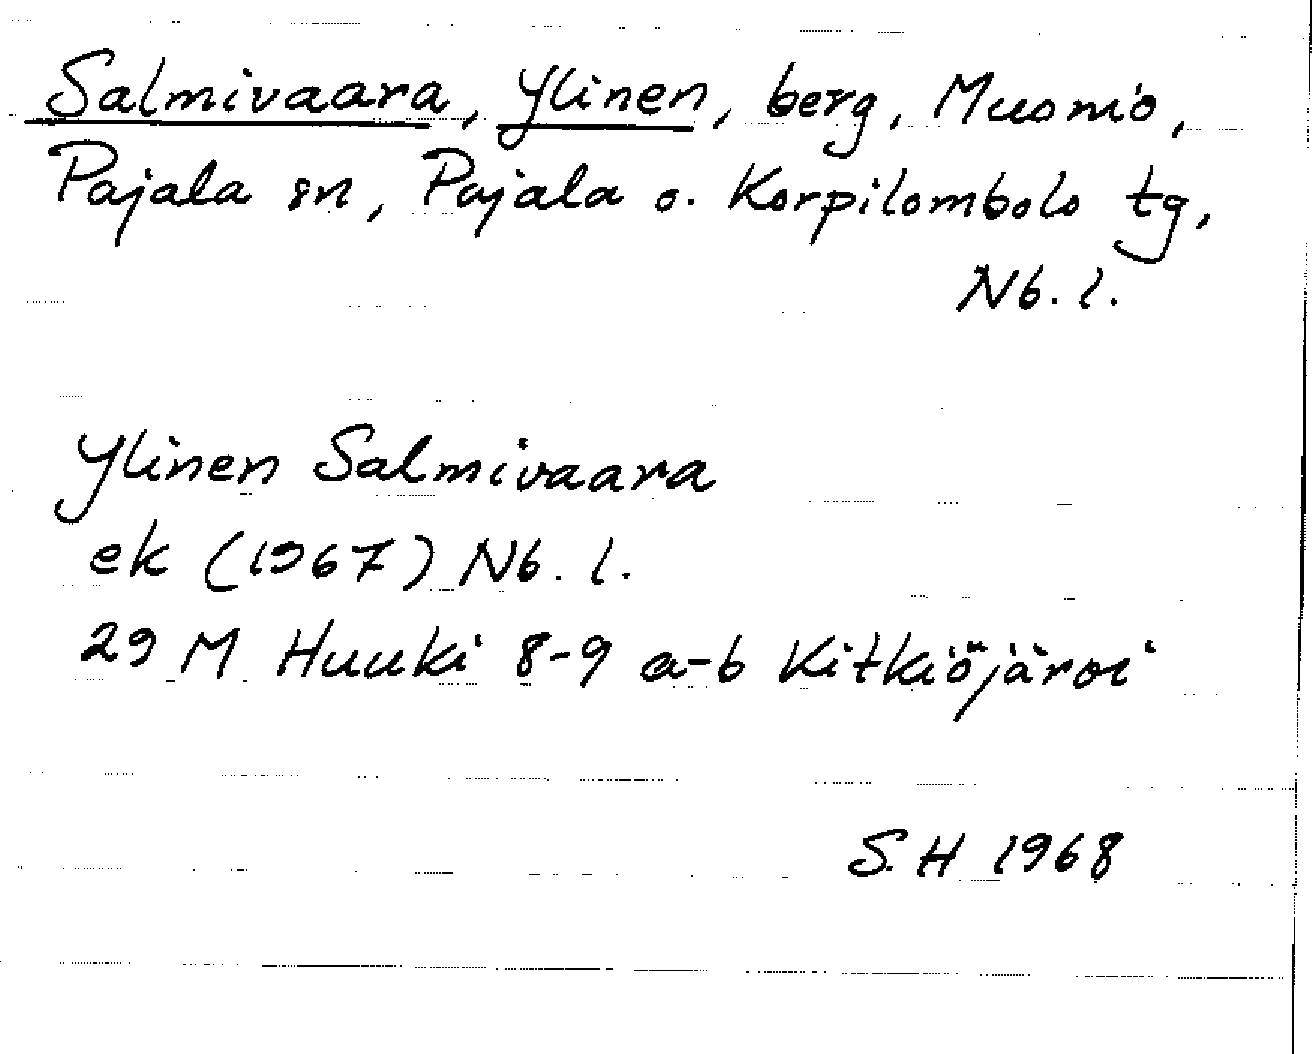 Salmivaara, Ylinen, berg, Muonio,
Pajala sn, Pajala o. Korpilombolo tg,
Nb. l.
Ylinen Salmivaara
ek (1967) Nb. l.
29 M Huuki 8-9 a-b Kitkiöjärvi
S.H 1968